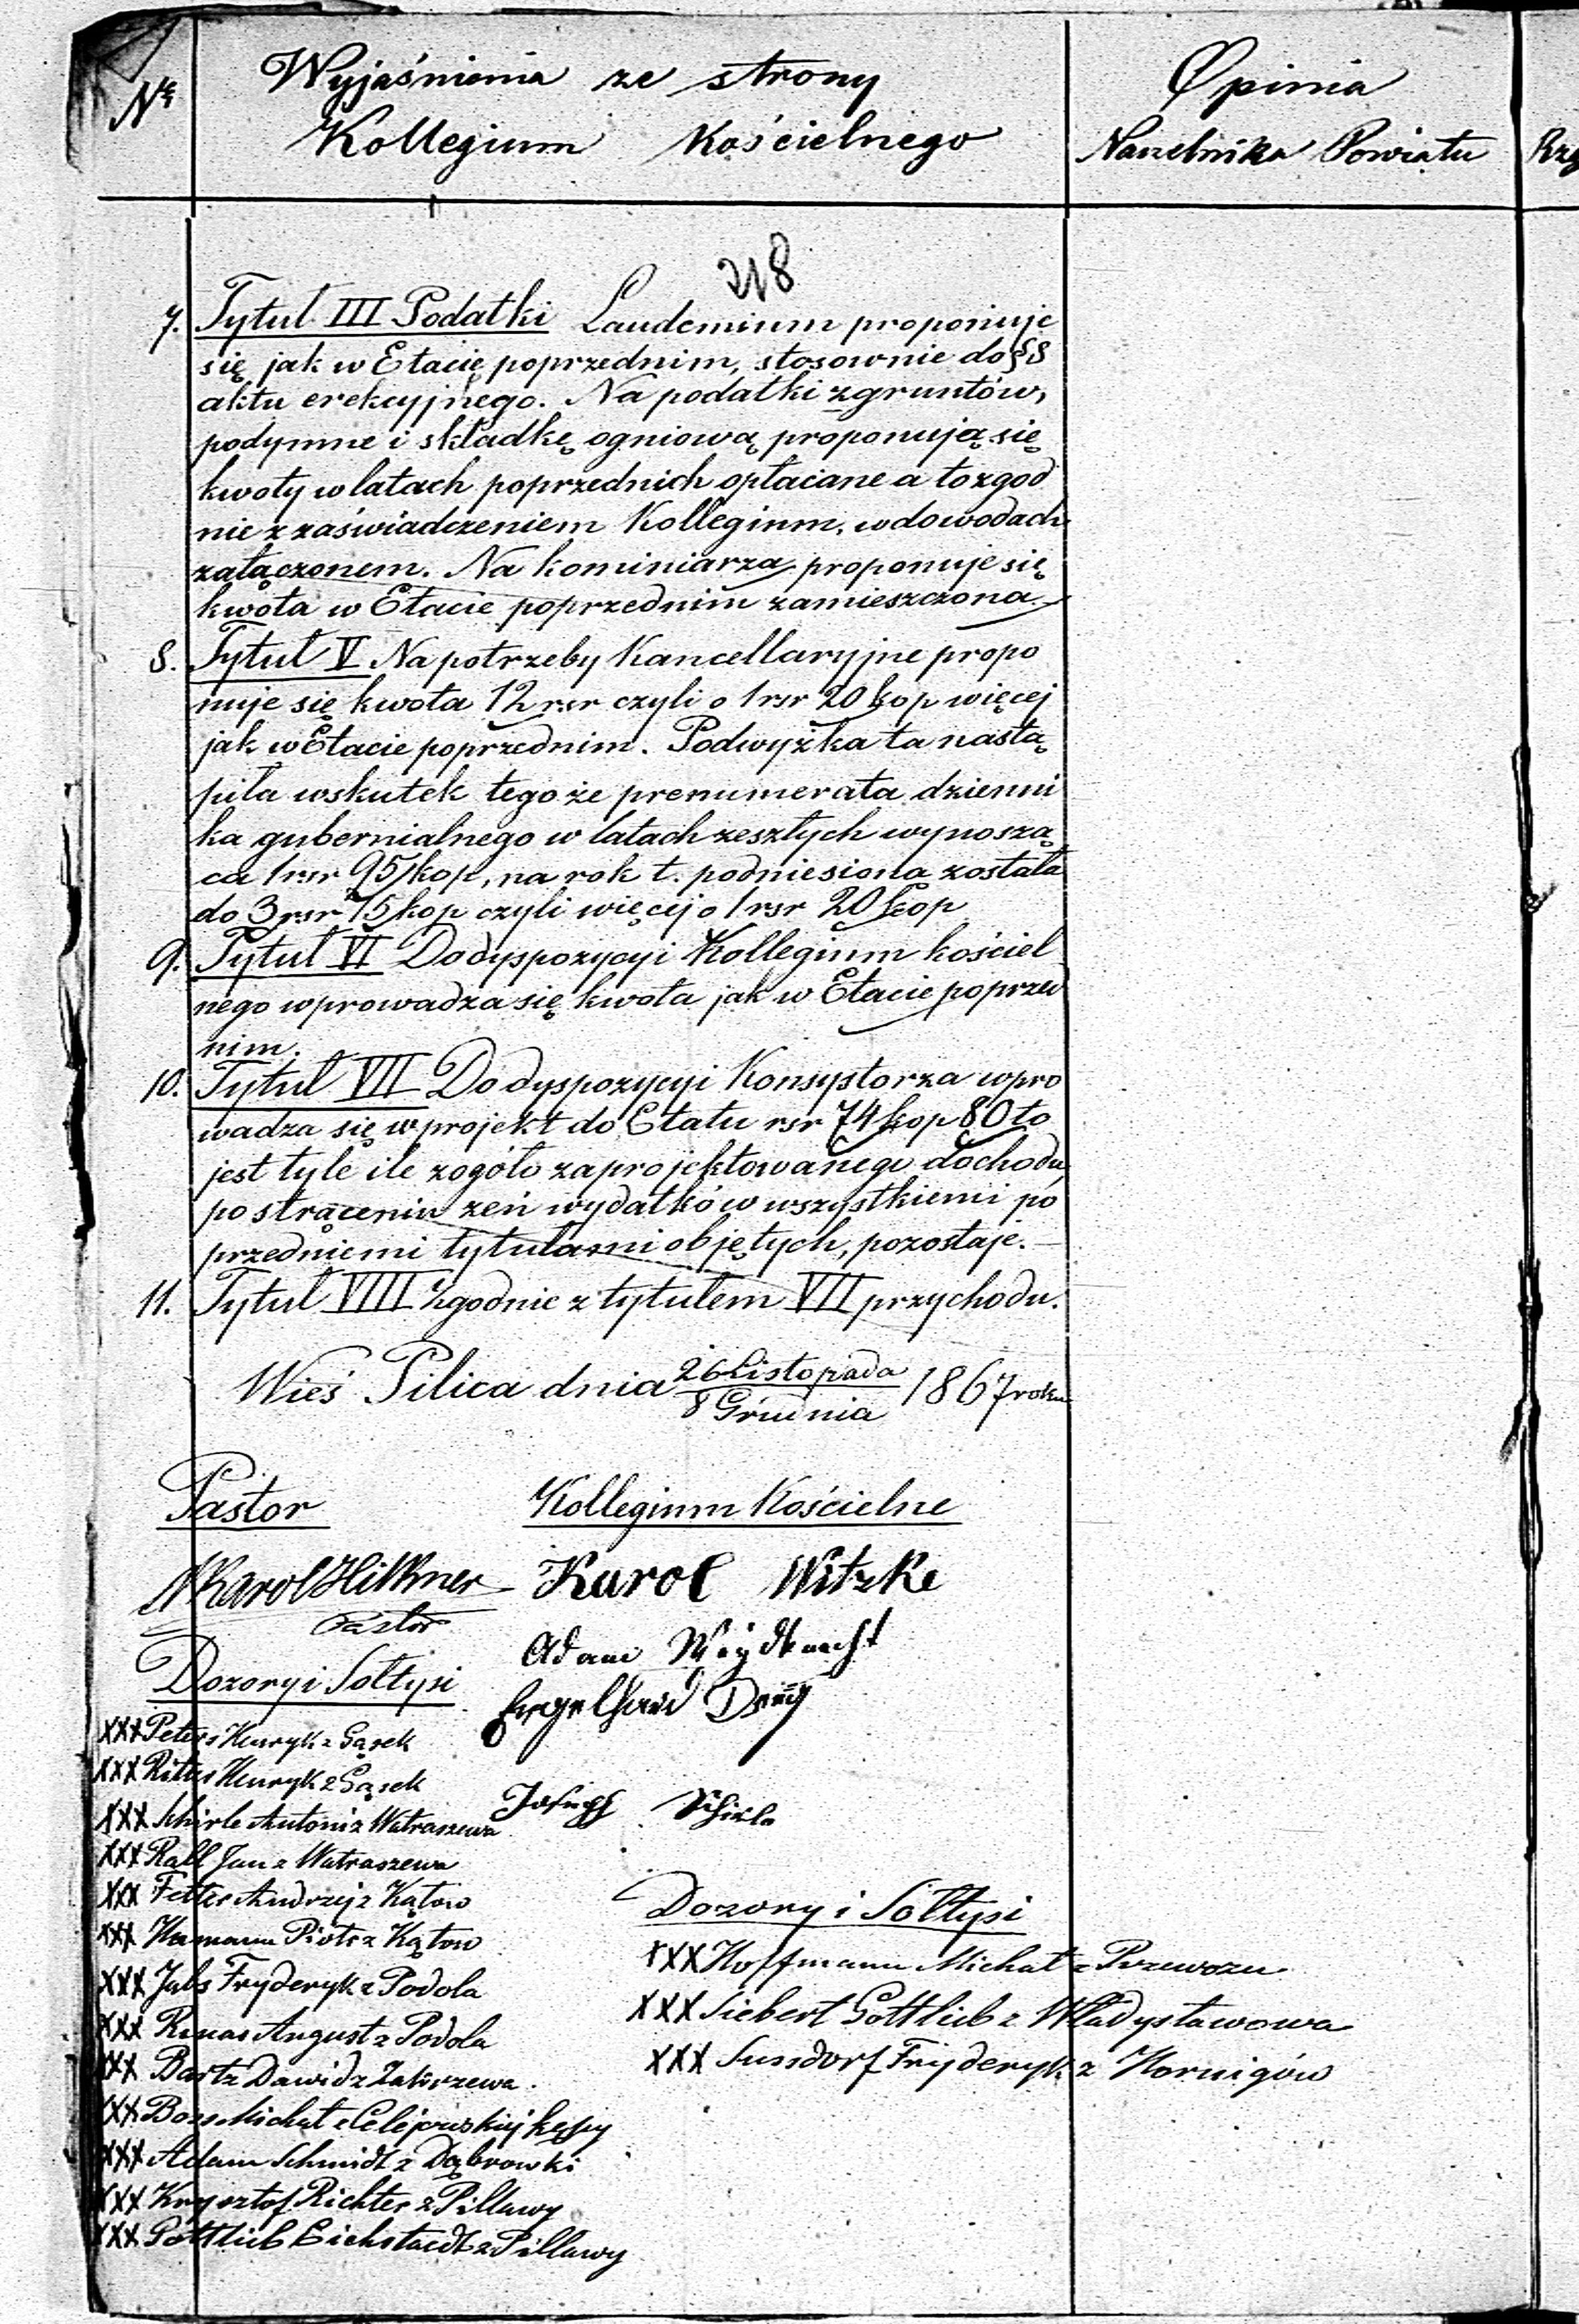 Nr
Wyjaśnienia ze strony
Kollegium Kościelnego
Opinia
Naczelnika Powiatu
Rzą
218
7. Tytuł III Podatki Laudemium proponuje
się jak w Etacie poprzednim, stosownie do § 8
aktu erekcyjnego. Na podatki z gruntów,
podymne i składkę ogniową proponują się
kwoty w latach poprzednich opłacane a to zgod
nie z zaświadczeniem Kollegium, w dowodach
załączonem. Na kominiarza proponuje się
kwota w Etacie poprzednim zamieszczona.
8. Tytuł V Na potrzeby Kancellaryjne propo
nuje się kwota 12 rsr czyli o 1 rsr 20 kop więcej
jak w Etacie poprzednim. Podwyżka ta nastą
piła wskutek tego że prenumerata dzienni
ka gubernialnego w latach zeszłych wynoszą
ca 1 rsr 95 kop, na rok t. podniesiona została
do 3 rsr 15 kop czyli więcej o 1 rsr 20 kop
9. Tytuł VI Do dyspozycyi Kollegium kościel
nego wprowadza się kwota jak w Etacie poprzed
nim.
10. Tytuł VII Do dyspozycyi Konsystorza wpro
wadza się w projekt do Etatu rsr 74 kop 80 to
jest tyle ile z ogółu zaprojektowanego dochodu,
po strąceniu zeń wydatków wszystkiemi po
przedniemi tytułami objętych, pozostaje.
11. Tytuł VIII Zgodnie z tytułem VII przychodu.
Wieś Pilica dnia 26 Listopada / 8 Grudnia 1867 roku
Pastor
Kollegium Kościelne
Karol
Pastor
Karol Witzke
Adam Weydknecht
Engelhard
Joseph
Dozory i Sołtysi
XXX Peters Henryk z Gąsek
XXX Henryk z Gąsek
XXX Antoni z Watraszewa
XXX Rall Jan z Watraszewa
XXX Fetter Andrzej z Kątow
XXX Hamann Piotr z Kątow
XXX Jabs Fryderyk z Podola
XXX August z Podola
XXX Bartz Dawid z Zakrzewa.
XXX Michał z Celejowskiej kępy
XXX Adam Schmidt z Dąbrowki
XXX Krysztof Richter z Pillawy
XXX Gottlieb Eichstaedt z Pillawy
Dozory i Sołtysi
XXX Hoffmann Michał z Przewozu
XXX Siebert Gottlieb z Władysławowa
XXX Sussdorf Fryderyk z Hornigów